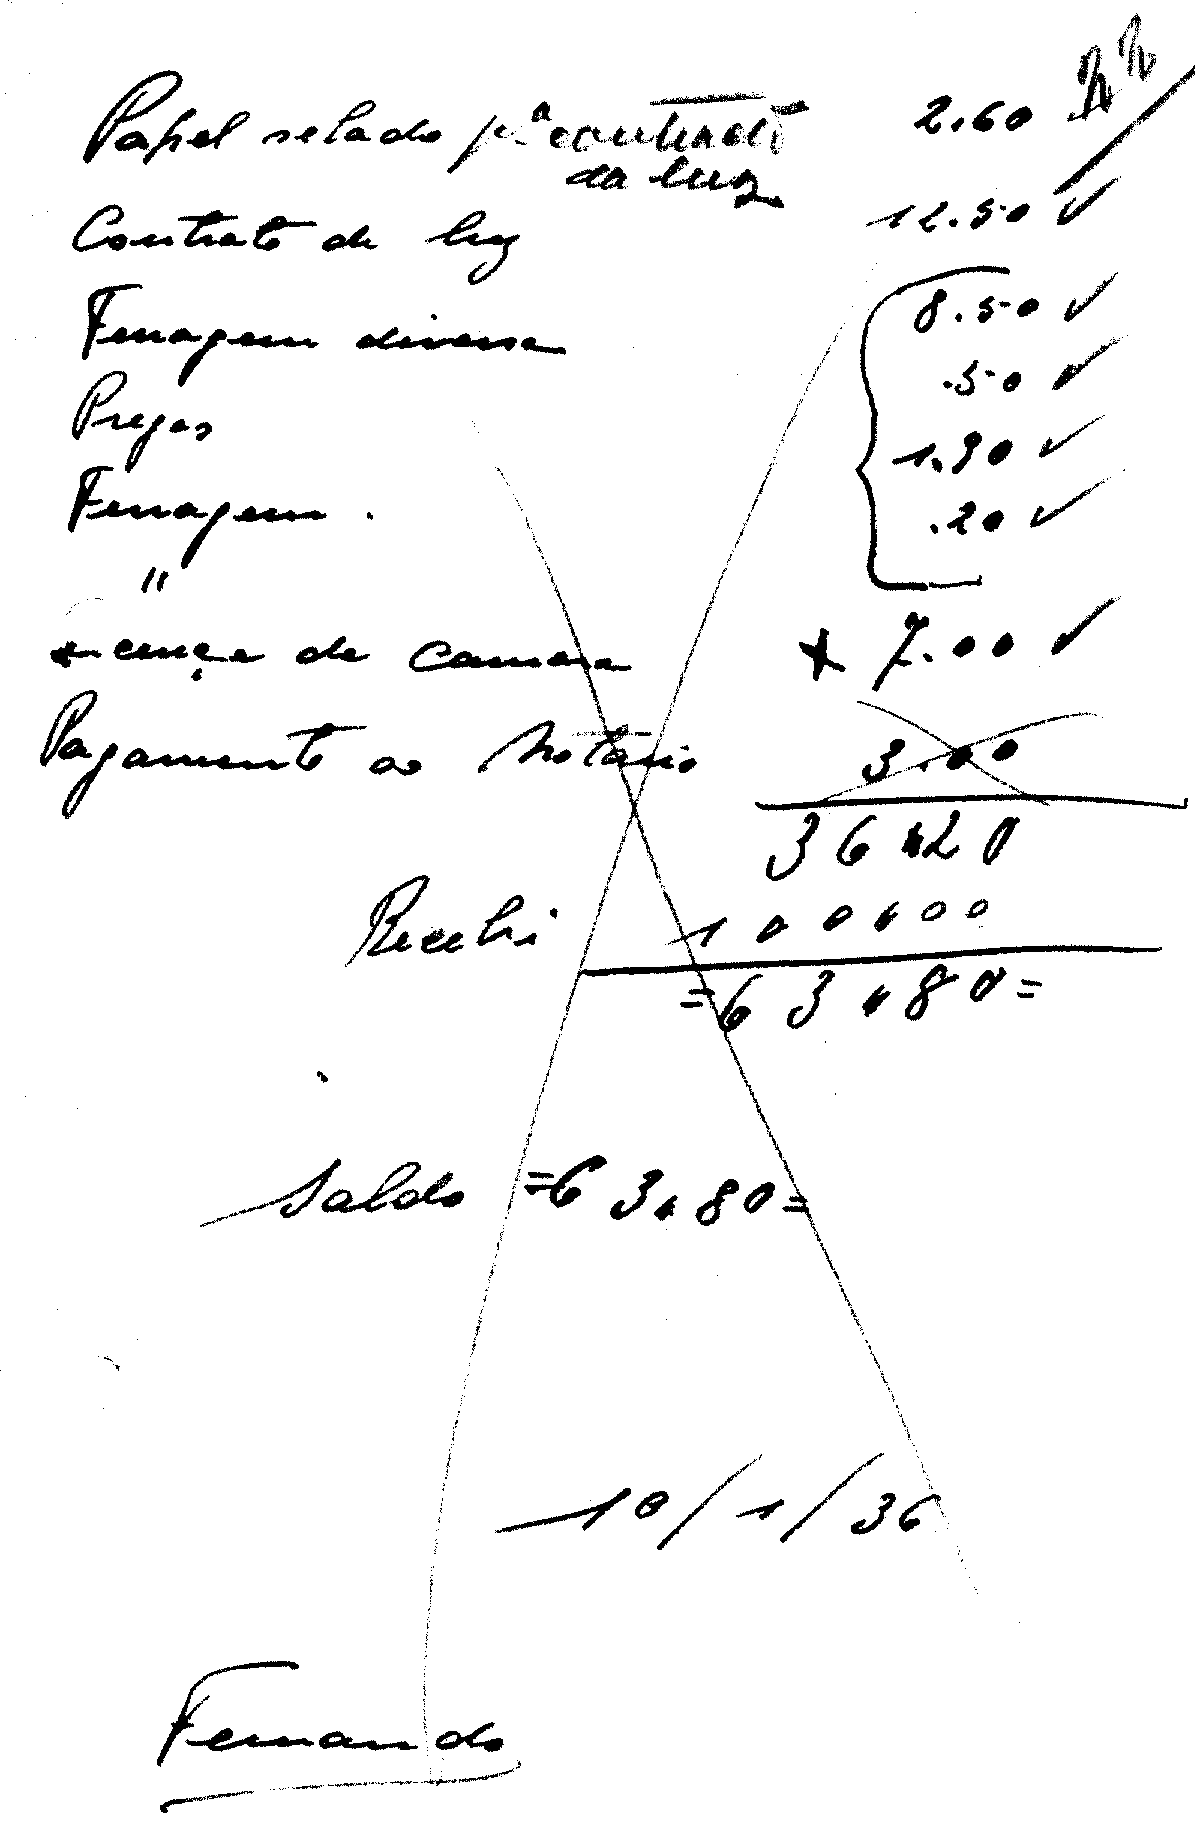 Papel selado p.ª contrato 2.60
da luz
Contrato de luz 12.50 ✓
Ferragem diversa 8.50 ✓
Pregos .50 ✓
Ferragem . 1.90 ✓
" .20 ✓
Licença de camara x 7.00 ✓
Pagamento ao Notario 3.00
36.20
Recebi 100.00
=63.80=
Saldo =63.80=
10/1/36
Fernando